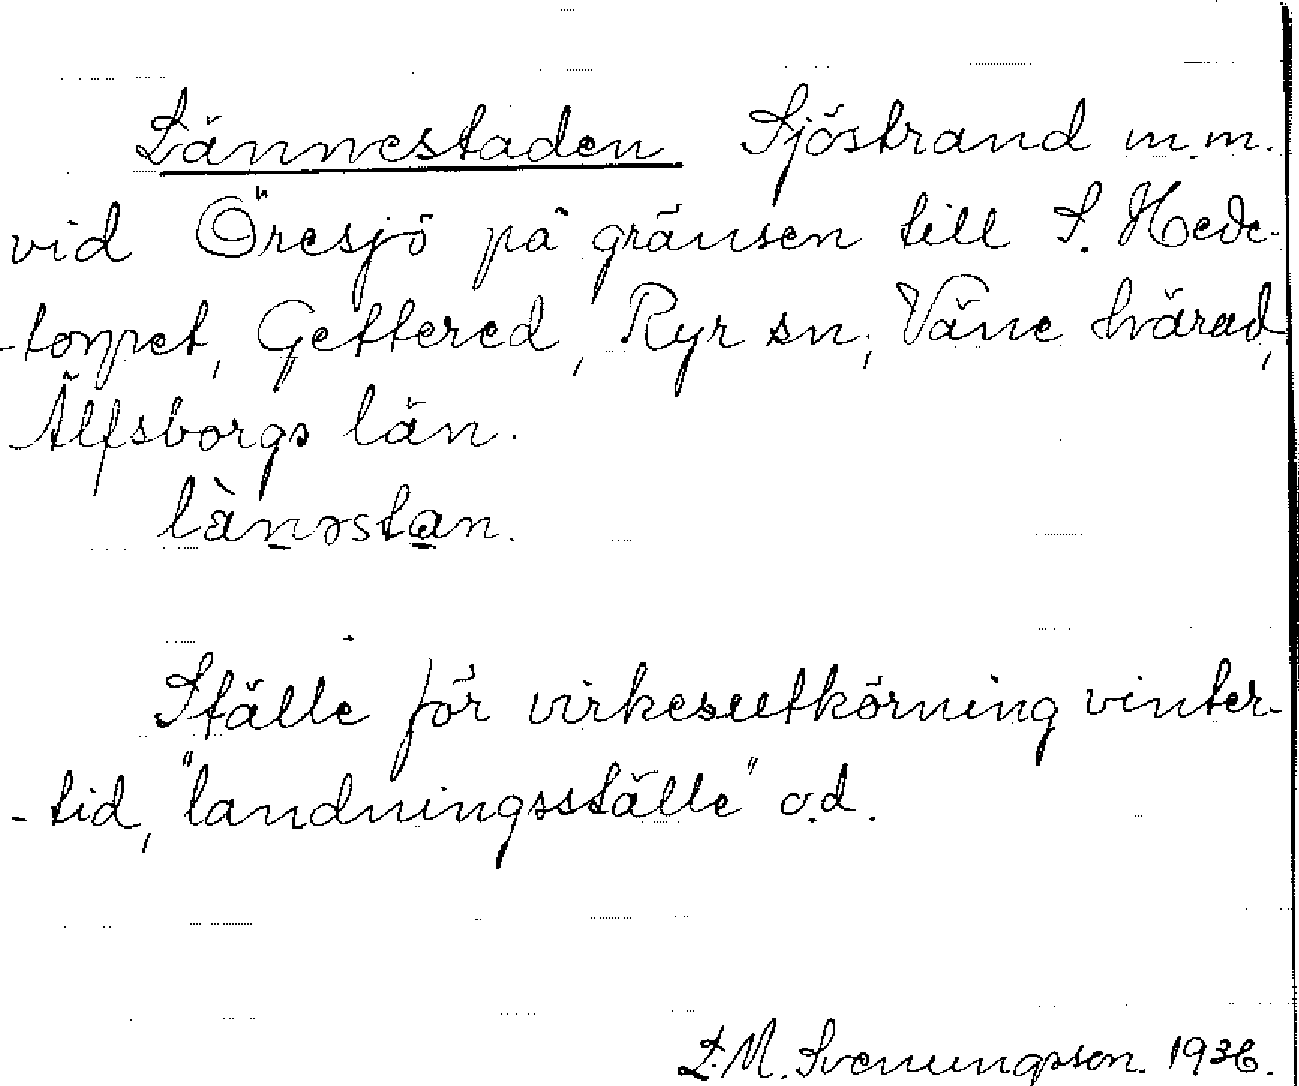 Lännestaden Sjöstrand m.m.
vid Öresjö på gränsen till S. Hede-
-torpet, Gettered, Ryr sn, Väne härad,
Älfsborgs län.
lànəstan.
Ställe för virkesutkörning vinter-
-tid, "landningsställe" o.d.
L.M. Svenungsson. 1936.